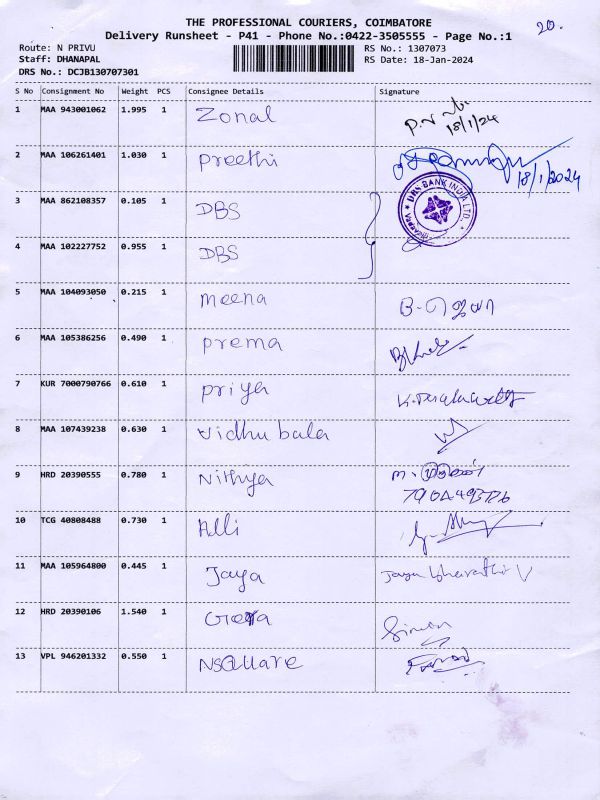 THE PROFESSIONAL COURIERS, COIMBATORE
20.
Delivery Runsheet - P41 - Phone No.:0422-3505555 - Page No.:1
Route: N PRIVU RS No.: 1307073
Staff: DHANAPAL RS Date: 18-Jan-2024
DRS No.: DCJB130707301
S No Consignment No Weight PCS Consignee Details Signature
1 MAA 943001062 1.995 1 Zonal P.N
18/1/24
2 MAA 106261401 1.030 1 Preethi
18/1/2024
3 MAA 862108357 0.105 1 DBS
DBS BANK INDIA LTD.
4 MAA 102227752 0.955 1 DBS
5 MAA 104093050 0.215 1 Meena
6 MAA 105386256 0.490 1 Prema
7 KUR 7000790766 0.610 1 Priya
8 MAA 107439238 0.630 1 Vidhu bala
9 HRD 20390555 0.780 1 Nithya
10 TCG 40808488 0.730 1 Alli
11 MAA 105964800 0.445 1 Jaya Jaya bharathi V
12 HRD 20390106 1.540 1 Geeta Simon
13 VPL 946201332 0.550 1 NSQUare